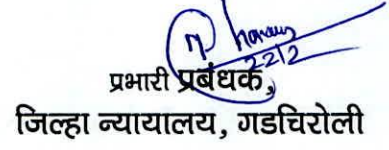 22/2
प्रभारी प्रबंधक,
जिल्हा न्यायालय, गडचिरोली